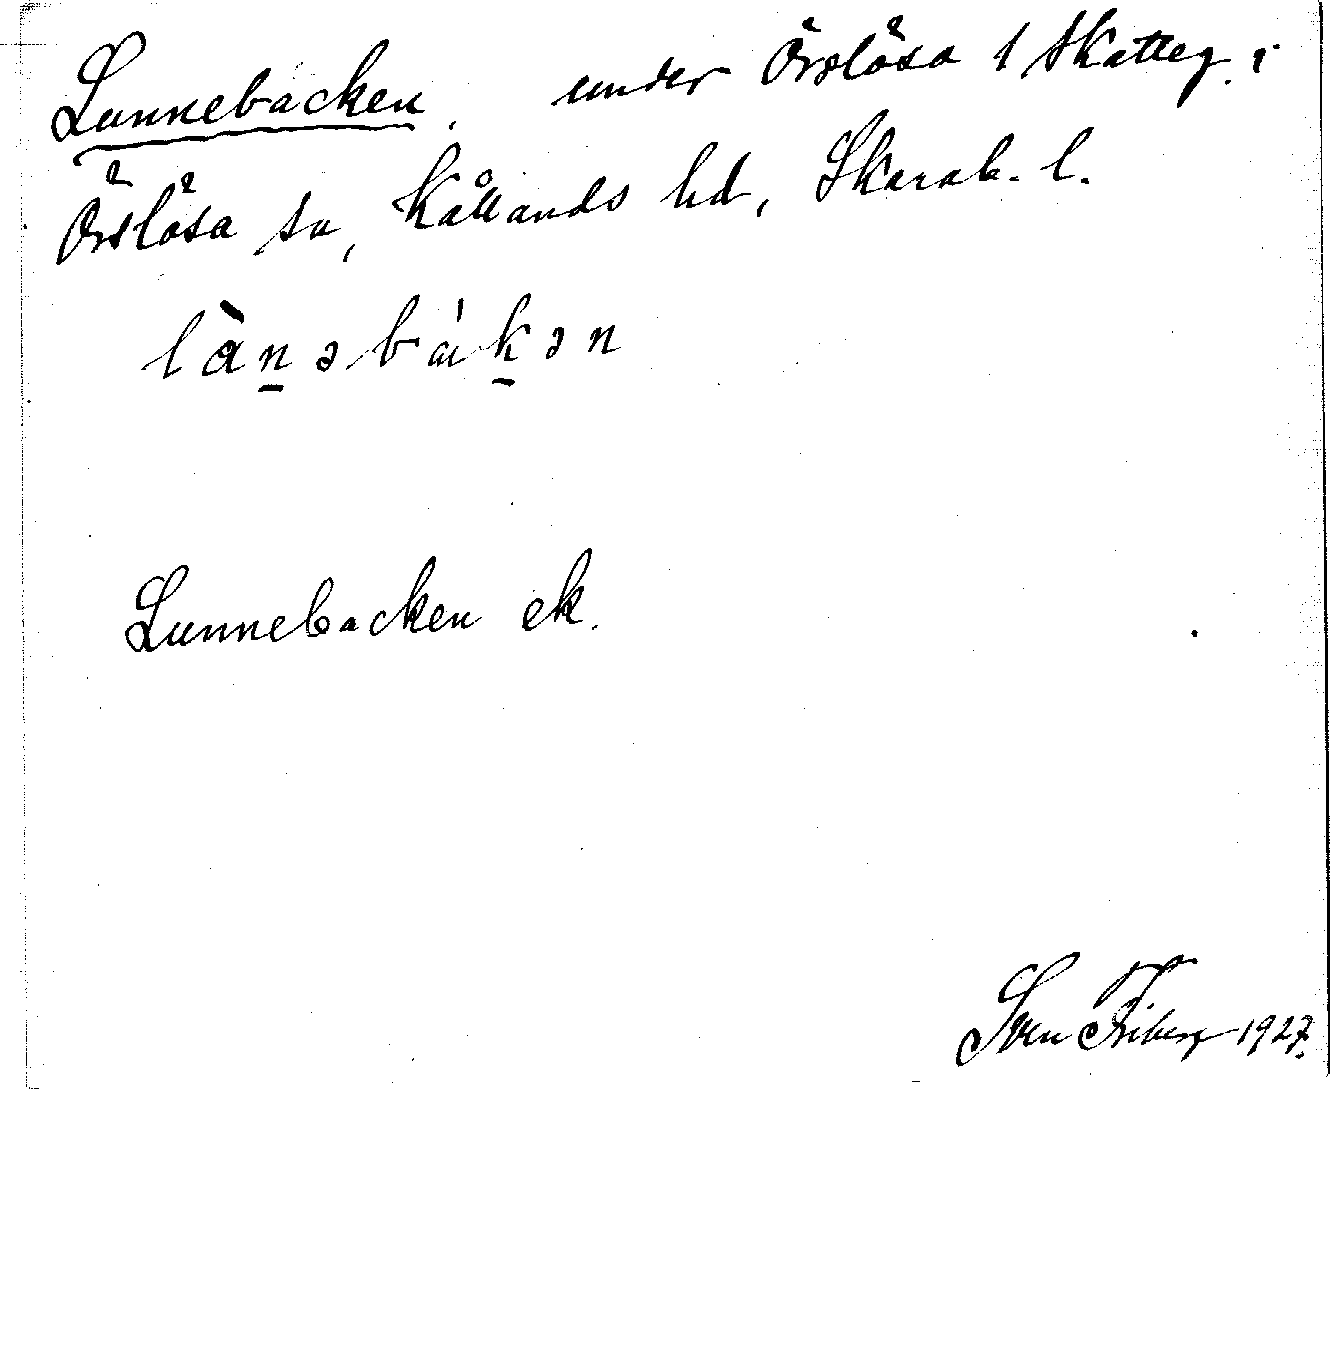 Lunnebacken, under Örslösa 1 Skatteg. i
Örslösa sn, Kållands hd, Skarab. l.
lànəbákən
Lunnebacken ek.
Sven Friberg 1927.